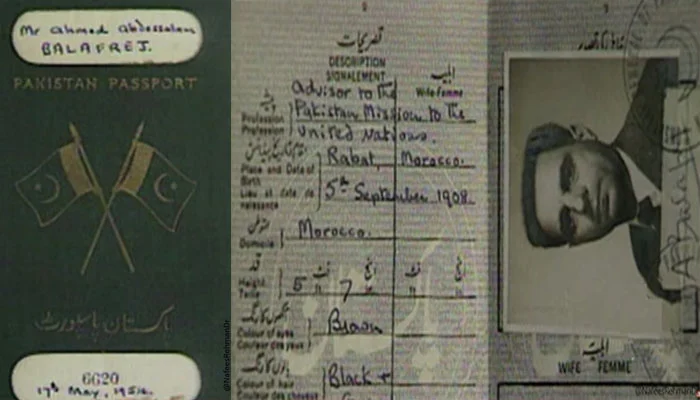 Mr Ahmed Abdessalam
BALAFREJ.
PAKISTAN PASSPORT
پاکستان پاسپورٹ
6620
17th May, 1952.
تصریحات
DESCRIPTION
SIGNALEMENT
اہلیہ
Wife-Femme
پیشہ
Profession
Profession
Advisor to the
Pakistan Mission to the
United Nations.
Place and Date of
Birth
Lieu et date de
naissance
Rabat, Morocco.
5th September 1908.
Domicile
Morocco.
قد
Height
Taille
فٹ
انچ
فٹ
انچ
5
7
Colour of eyes
Couleur des yeux
Brown
Colour of hair
Couleur des cheveux
Black +
اہلیہ
WIFE FEMME